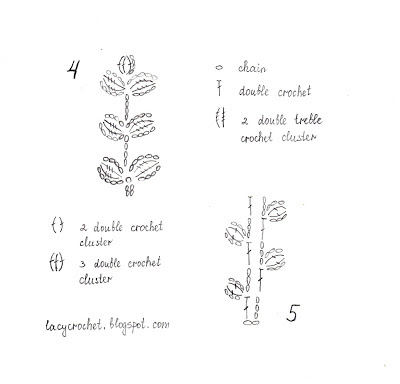 4
chain
double crochet
2 double treble
crochet cluster
2 double crochet
cluster
3 double crochet
cluster
5
lacycrochet.blogspot.com